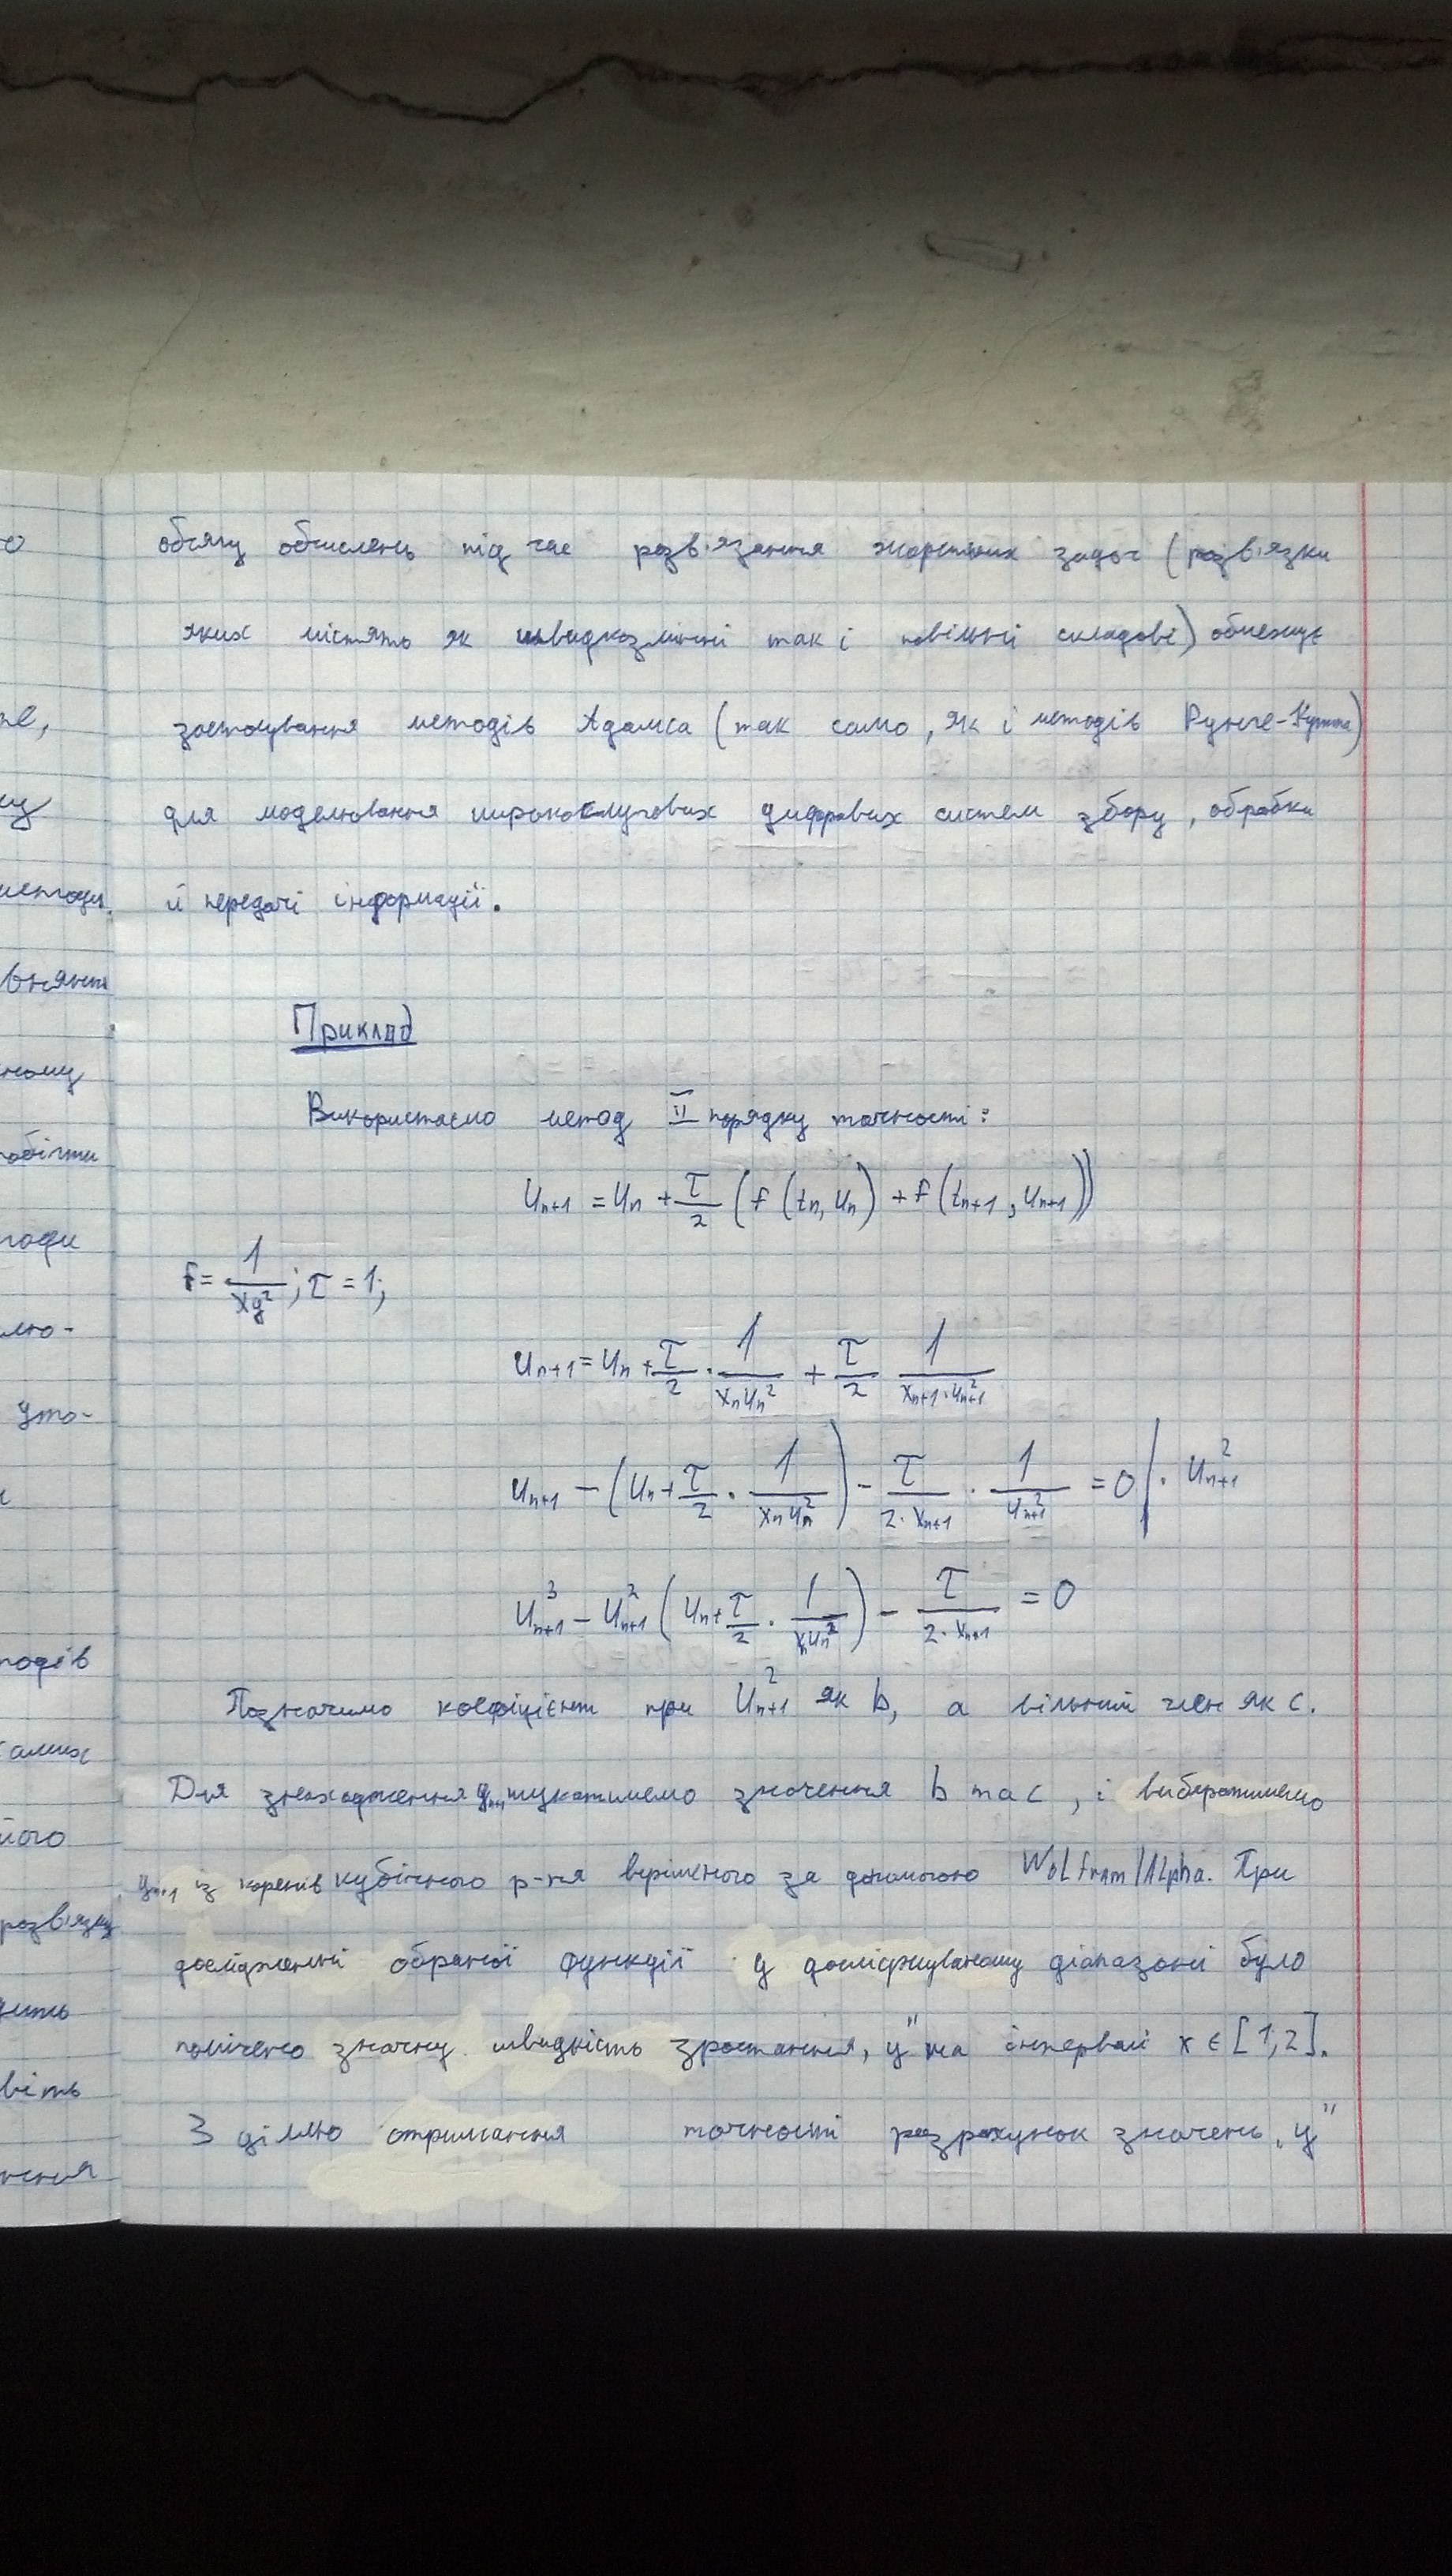 обсягу обчислень під час розв'язання жорстких задач (розв'язки
яких містять як швидкозмінні так і повільні складові) обмежує
застосування методів Адамса (так само, як і методів Рунге-Кутта)
для моделювання широкосмугових цифрових систем збору, обробки
й передачі інформації.
Приклад
Використаємо метод II порядку точності:
U_{n+1} = U_n + τ/2 (f(t_n, U_n) + f(t_{n+1}, U_{n+1}))
f = 1/(xy²); τ = 1;
U_{n+1} = U_n + τ/2 · 1/(x_n U_n²) + τ/2 1/(x_{n+1} · U_{n+1}²)
U_{n+1} - (U_n + τ/2 · 1/(x_n U_n²)) - τ/(2 · x_{n+1}) · 1/(U_{n+1}²) = 0 | · U_{n+1}²
U_{n+1}³ - U_{n+1}² (U_n + τ/2 · 1/(x_n U_n²)) - τ/(2 · x_{n+1}) = 0
Позначимо коефіцієнт при U_{n+1}² як b, а вільний член як c.
Для знаходження y_{n+1} шукатимемо значення b та c, і вибиратимемо
y_{n+1} із коренів кубічного р-ня вирішеного за допомогою Wolfram|Alpha. При
дослідженні обраної функції у досліджуваному діапазоні було
помічено значну швидкість зростання „y" на інтервалі x ∈ [1,2].
З ціллю отримання точності розрахунок значень „y"